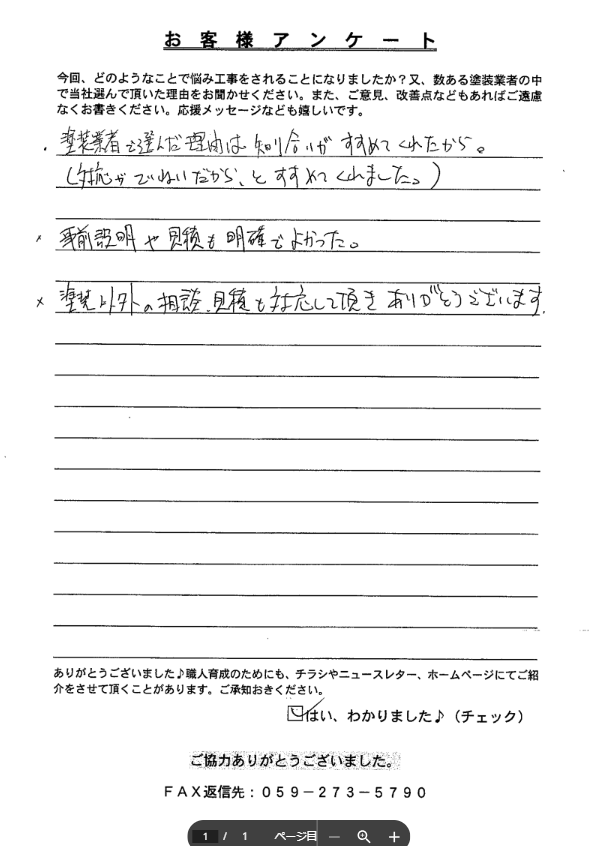 お客様アンケート
今回、どのようなことで悩み工事をされることになりましたか？又、数ある塗装業者の中
で当社選んで頂いた理由をお聞かせください。また、ご意見、改善点などもあればご遠慮
なくお書きください。応援メッセージなども嬉しいです。
・塗装業者で選んだ理由は知り合いがすすめてくれたから。
(対応がていねいだから、とすすめてくれました。)
× 事前説明や見積も明確でよかった。
× 塗装以外の相談、見積も対応して頂きありがとうございます.
ありがとうございました♪職人育成のためにも、チラシやニュースレター、ホームページにてご紹
介をさせて頂くことがあります。ご承知おきください。
はい、わかりました♪（チェック）
ご協力ありがとうございました。
FAX返信先：059－273－5790
1 / 1 ページ目 — +